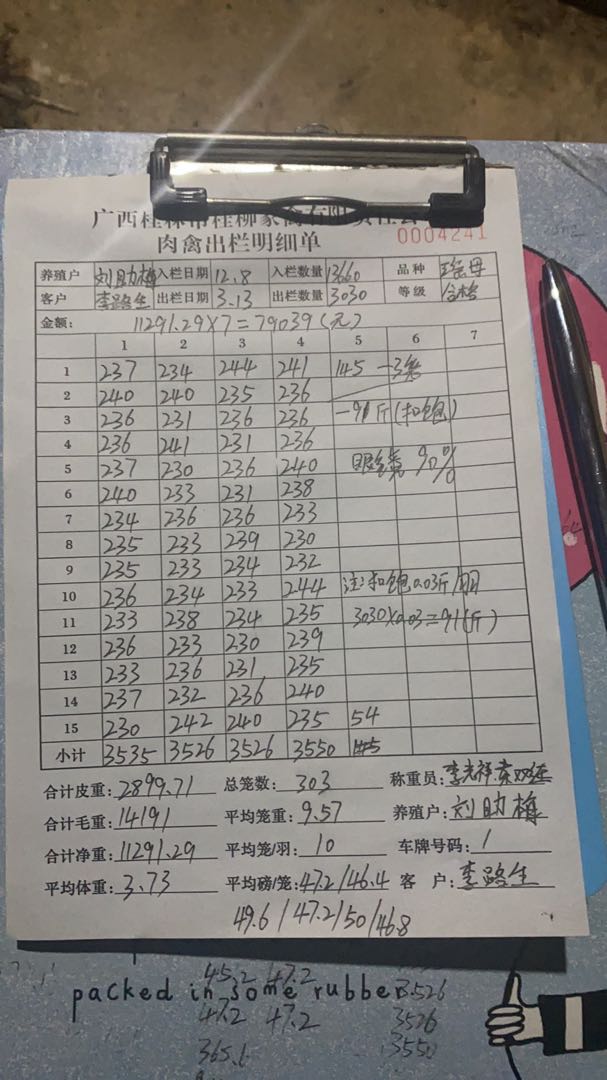 肉禽出栏明细单
0004241
养殖户 刘助梅 入栏日期 12.8 入栏数量 13660 品种
客户 李路生 出栏日期 3.13 出栏数量 3030 等级 合格
金额: 11291.29×7=79039(元)
1 2 3 4 5 6 7
1 237 234 244 241 145 —3笼
2 240 240 235 236
3 236 231 236 236 —91斤(扣饱)
4 236 241 231 236
5 237 230 236 240 90%
6 240 233 231 238
7 234 236 236 233
8 235 233 239 230
9 235 233 234 232
10 236 234 233 244 注:扣饱0.03斤/
11 233 238 234 235 3030×0.03=91(斤)
12 236 233 230 239
13 233 236 231 235
14 237 232 236 240
15 230 242 240 235 54
小计 3535 3526 3526 3550
合计皮重: 2899.71 总笼数: 303 称重员: 李光祥
合计毛重: 14191 平均笼重: 9.57 养殖户: 刘助梅
合计净重: 11291.29 平均笼/羽: 10 车牌号码: 1
平均体重: 3.73 平均磅/笼: 47.2/46.4 客户: 李路生
49.6/47.2/50/46.8
45.2 47.2
packed in some rubber 3526
47.2 47.2 3526
365.1 3550